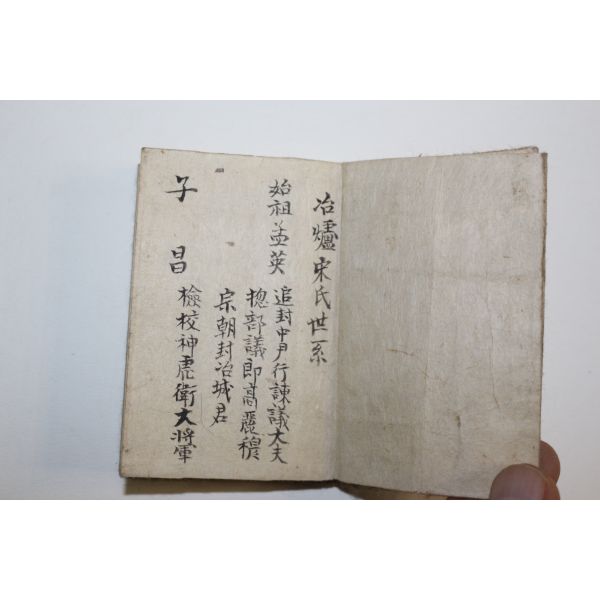 冶爐宋氏世系
始祖孟英
追封中尹行諫議大夫
摠部議郎高麗穆
宗朝封冶城君
子
昌
檢校神虎衛大将軍